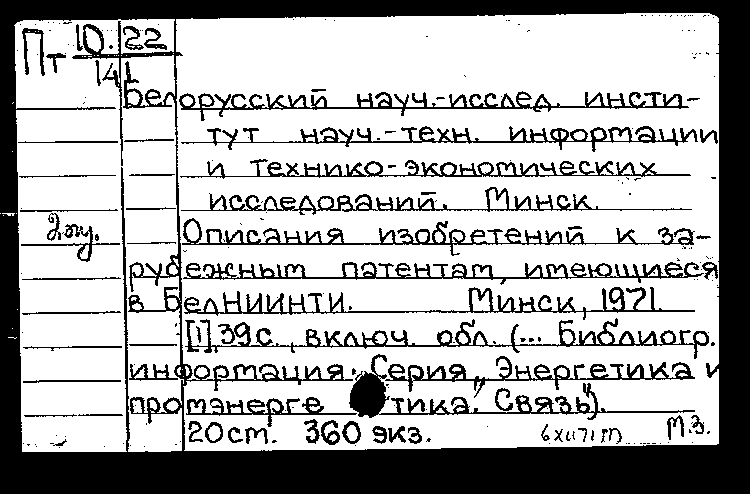 Пт 10.22
141
Белорусский науч.-исслед. инсти-
тут науч.-техн. информации
и технико-экономических
исследований. Минск.
2 экз.
Описания изобретений к за-
рубежным патентам, имеющиеся
в БелНИИНТИ. Минск, 1971.
[1], 39 с., включ. обл. (... Библиогр.
информация. Серия „Энергетика и
промэнерге тика. Связь").
20 см. 360 экз.
М.З.